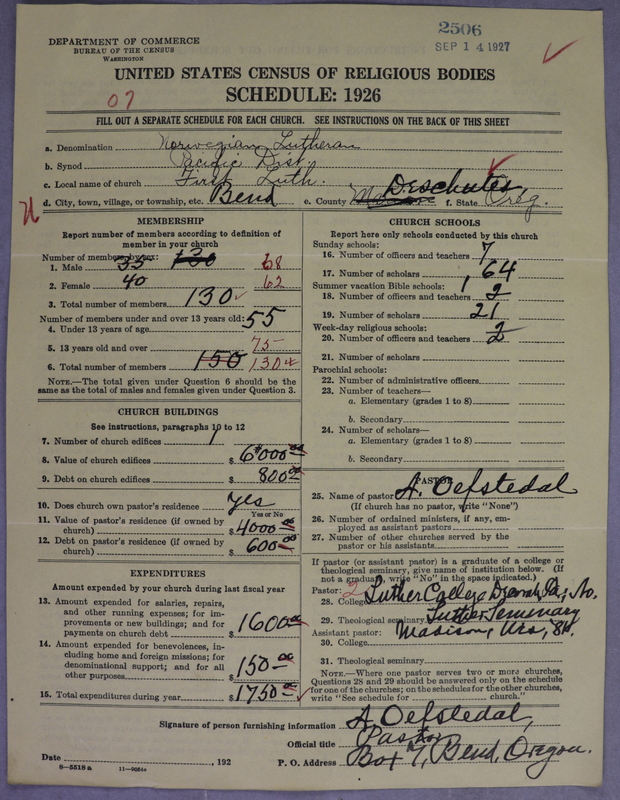 2506
SEP 14 1927
DEPARTMENT OF COMMERCE
BUREAU OF THE CENSUS
WASHINGTON
UNITED STATES CENSUS OF RELIGIOUS BODIES
SCHEDULE: 1926
07
FILL OUT A SEPARATE SCHEDULE FOR EACH CHURCH. SEE INSTRUCTIONS ON THE BACK OF THIS SHEET
a. Denomination Norwegian Lutheran
b. Synod Pacific Dist.
c. Local name of church First Luth.
d. City, town, village, or township, etc. Bend e. County Deschutes f. State Oreg.
MEMBERSHIP
Report number of members according to definition of
member in your church
Number of members by sex:
1. Male 35 130 68
2. Female 40 62
3. Total number of members 130
Number of members under and over 13 years old:
4. Under 13 years of age 55
5. 13 years old and over 75
6. Total number of members 150 130
NOTE.—The total given under Question 6 should be the
same as the total of males and females given under Question 3.
CHURCH BUILDINGS
See instructions, paragraphs 10 to 12
7. Number of church edifices 1
8. Value of church edifices $ 6000 00
9. Debt on church edifices $ 800 00
10. Does church own pastor's residence Yes
Yes or No
11. Value of pastor's residence (if owned by
church) $ 4000 00
12. Debt on pastor's residence (if owned by
church) $ 600
EXPENDITURES
Amount expended by your church during last fiscal year
13. Amount expended for salaries, repairs,
and other running expenses; for im-
provements or new building; and for
payments on church debt $ 1600 00
14. Amount expended for benevolences, in-
cluding home and foreign missions; for
denominational support; and for all
other purposes $ 150 00
15. Total expenditures during year $ 1750 00
CHURCH SCHOOLS
Report here only schools conducted by this church
Sunday schools:
16. Number of officers and teachers 7
17. Number of scholars 64
Summer vacation Bible schools: 1
18. Number of officers and teachers 2
19. Number of scholars 21
Week-day religious schools:
20. Number of officers and teachers 2
21. Number of scholars
Parochial schools:
22. Number of administrative officers
23. Number of teachers—
a. Elementary (grades 1 to 8)
b. Secondary
24. Number of scholars—
a. Elementary (grades 1 to 8)
b. Secondary
PASTOR
25. Name of pastor A. Oefstedal
(If church has no pastor, write "None")
26. Number of ordained ministers, if any, em-
ployed as assistant pastors
27. Number of other churches served by the
pastor or his assistants
If pastor (or assistant pastor) is a graduate of a college or
theological seminary, give name of institution below. (If
not a graduate, write "No" in the space indicated.)
Pastor: 2
28. College Luther College Decorah, Ia.,
29. Theological seminary Luther Seminary
Assistant pastor: Madison, Wis,
30. College
31. Theological seminary
NOTE.—Where one pastor serves two or more churches,
Questions 28 and 29 should be answered only on the schedule
for one of the churches; on the schedules for the other churches,
write "See schedule for church."
Signature of person furnishing information A. Oefstedal,
Official title Pastor
Date , 192 P. O. Address Box 7, Bend, Oregon.
8—5518 a 11—9051